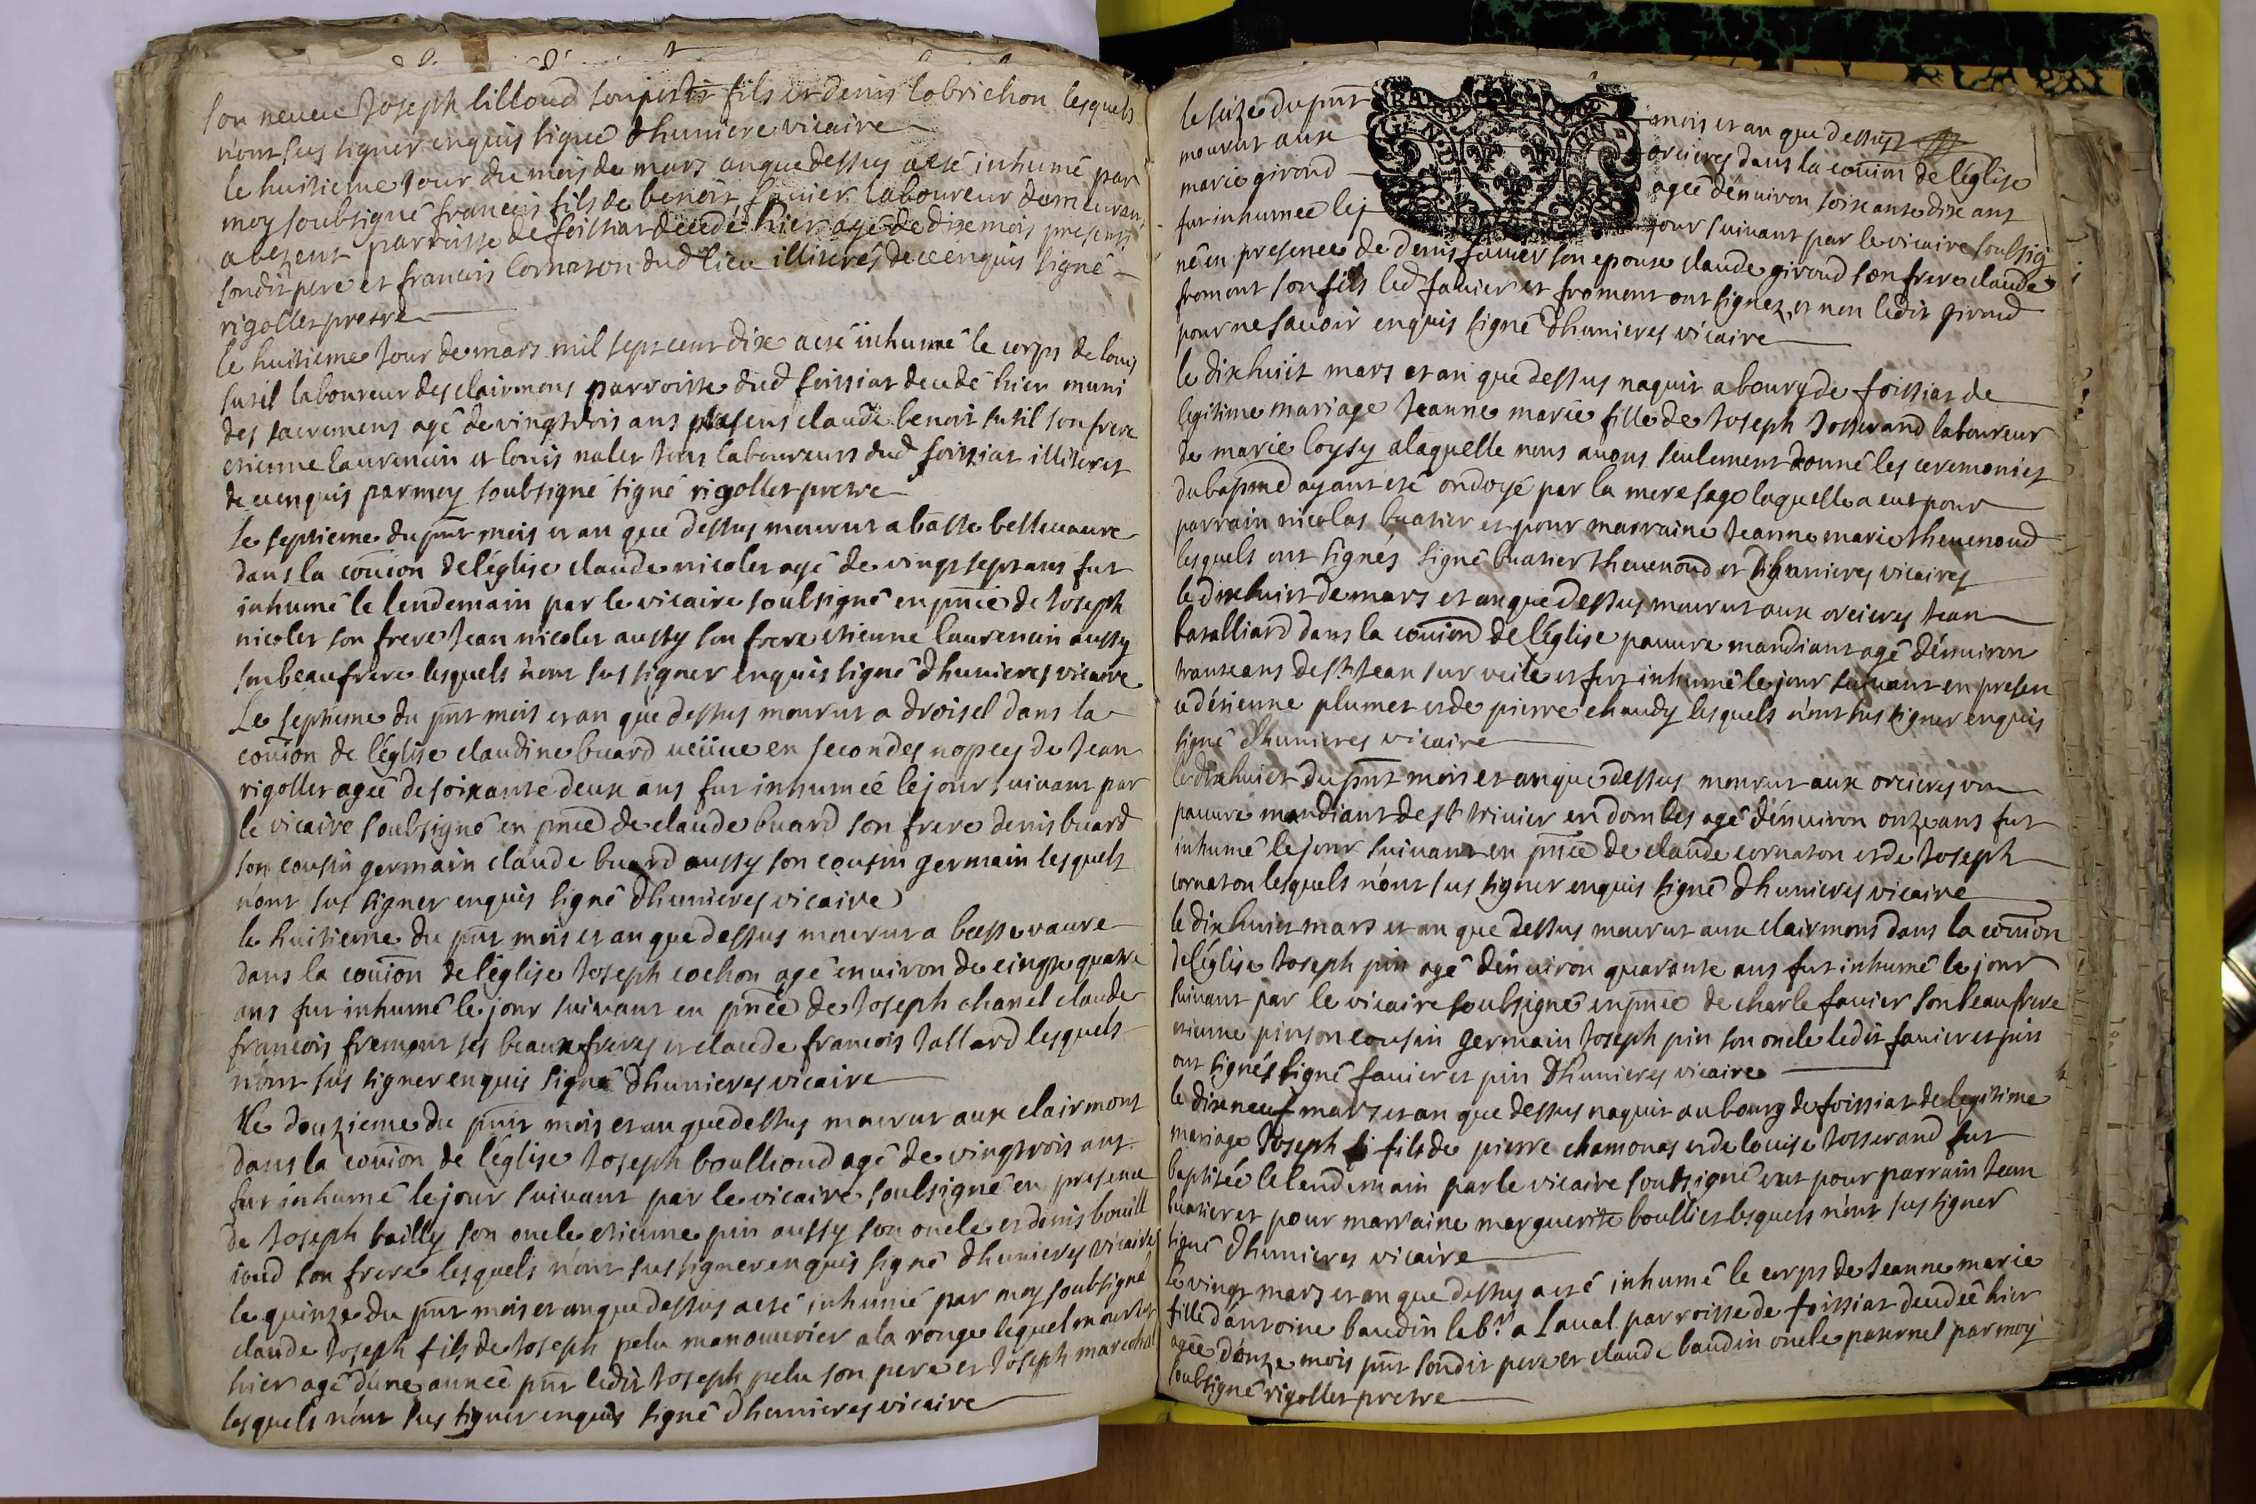 son neveu Joseph lilloud son petit fils et denis lobrichon lesquels
n'ont sus signer enquis signé dhumiere vicaire
le huitieme Jour du mois de mars an que dessus a esté inhumé par
moy soubsigné francois fils de benoit favier laboureur demeurant
a bezent parroisse de foissiat decedé hier agé de dix mois presents
sondit pere et francois Cornaton dud lieu illiterés de ce enquis signé
rigollet prestre
le huitieme Jour de mars mil sept cent dix a esté inhumé le corps de louis
sutil laboureur des clairmons parroisse dud foissiat decedé hier muni
des sacremens agé de vingt trois ans presens claude benoit sutil son frere
etienne laurencin et louis nalet tous laboureurs dud foissiat illiteres
de ce enquis par moy soubsigné signé rigollet prestre
le septieme du pnt mois et an que dessus mourut a basse bellevavre
dans la coûion de léglise claude nicolet agé de vingt sept ans fut
inhumé le lendemain par le vicaire soubsigné en pnce de Joseph
nicolet son frere Jean nicolet aussy son frere etienne laurencin aussy
son beaufrere lesquels n'ont sus signer enquis signé dhumieres vicaire
Le septieme du pnt mois et an que dessus mourut a droisel dans la
coûion de léglise claudine buard veüve en secondes nopces de Jean
rigollet agée de soixante deux ans fut inhumée le jour suivant par
le vicaire soubsigné en pnce de claude buard son frere denis buard
son cousin germain claude buard aussy son cousin germain lesquels
n'ont sus signer enquis signé dhumieres vicaire
le huitieme du pnt mois et an que dessus mourut a basse vavre
dans la coûion de léglise Joseph cochon agé environ de cinqte quatre
ans fut inhumé le jour suivant en pnce de Joseph chanel claude
francois fremont ses beaux freres et claude francois tallard lesquels
n'ont sus signer enquis signé dhumieres vicaire
Le douzieme du pnt mois et an que dessus mourut aux clairmont
dans la coûion de léglise Joseph boulliond agé de vingt trois ans
fut inhumé le jour suivant par le vicaire soubsigné en presence
de Joseph bailly son oncle etienne pin aussy son oncle et denis boull
iond son frere lesquels n'ont sus signer enquis signé dhumieres vicaire
le quinze du pnt mois et an que dessus a esté inhumé par moy soubsigné
claude Joseph fils de Joseph pelu manouvrier a la ronge lequel mourut
hier agé dune année pnt ledit Joseph pelu son pere et Joseph marechal
lesquels n'ont sus signer enquis signé dhumieres vicaire
le seize du pnt mois et an que dessus
mourut aux orcieres dans la coûion de léglise
marie giroud agée dénviron soixante dix ans
fut inhumée le jour suivant par le vicaire soubsig
né en presence de denis favier son epoux claude giroud son frere claude
fromont son fils led favier et fromont ont signez et non ledit giroud
pour ne savoir enquis signé dhumieres vicaire
le dix huit mars et an que dessus naquit a bourg de foissiat de
legitime mariage Jeanne marie fille de Joseph Josserand laboureur
de marie loysy a laquelle nous avons seulement donné les ceremonies
du bapme ayant eté ondoyé par la mere sage laquelle a eut pour
parrain nicolas buatier et pour marraine Jeanne marie thevenoud
lesquels ont signés signé buatier thevenoud et dhumieres vicaires
le dix huict de mars et an que dessus mourut aux orcieres Jean
batalliard dans la coûion de léglise pauvre mandiant agé dénviron
trante ans de st Jean sur veile et fut inhumé le jour suivant en presen
ce détienne plumet et de pierre chaudy lesquels n'ont sus signer enquis
signé dhumieres vicaire
le dix huict du pnt mois et an que dessus mourut aux orcieres un
pauvre mandiant de st trivier en dombes agé dénviron onze ans fut
inhumé le jour suivant en pnce de claude cornaton et de Joseph
cornaton lesquels n'ont sus signer enquis signé dhumieres vicaire
le dix huict mars et an que dessus mourut aux clairmons dans la coûion
de léglise Joseph pin agé dénviron quarante ans fut inhumé le jour
suivant par le vicaire soubsigné en pnce de charle favier son beaufrere
etienne pin son cousin germain Joseph pin son oncle ledit favier et pin
ont signés signé favier et pin dhumieres vicaire
le dix neuf mars et an que dessus naquit au bourg de foissiat de legitime
mariage Joseph fils de pierre chamonas et de louise Josserand fut
baptisée le lendemain par le vicaire soubsigné eut pour parrain Jean
buatier et pour marraine marguerite boullier lesquels n'ont sus signer
signé dhumieres vicaire
le vingt mars et an que dessus a esté inhumé le corps de Jeanne marie
fille dántoine baudin labr a Laval parroisse de foissiat decedée hier
agée dónze mois pnt sondit pere et claude baudin oncle paternel par moy
soubsigné rigollet prestre